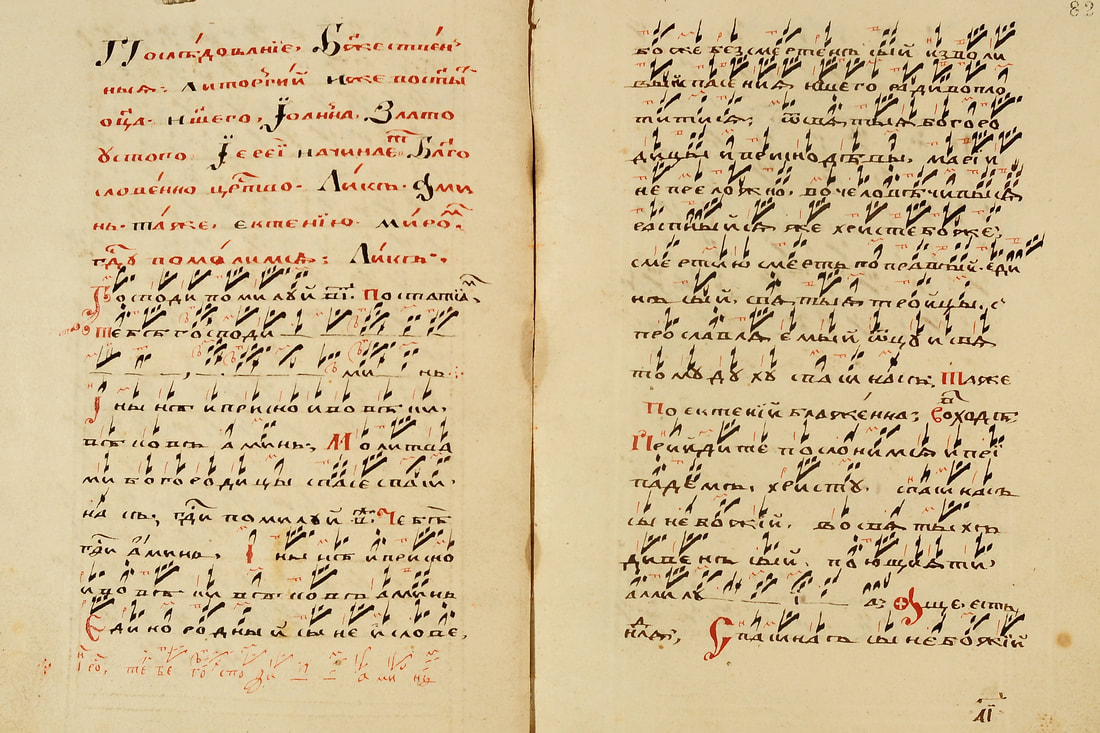 Послѣдованїе, Бжественъ
ныя: литоргїи иже во стыⷯ
оца. ншего, Їоанна. Злато
устого їереї начинаеⷮ Блго
словенно црⷭтво. Ликъ. Ами
нь. таже, ектенїю. миро,
гдꙋ помолимсѧ: Ликъ.
Господи помилуй гї. По стати
тебѣ господи
ами нь:
И нынѣ и присно и во вѣки,
вѣковъ аминь; Молитва
ми богородицы спасе спаси,
насъ; гди помилуй Тебѣ
гди аминь, И нынѣ и присно
и во вѣки вѣковъ аминь
Единородный сыне и слове,
тебе госпо ами нь
82
боже безсмертенъ сый изволи
вый спасения ншего ради вопло
титися; ѿ святыя богоро
дицы и приснодѣвы, марїи
непреложно, вочеловѣчивыся
распныйся же христе боже,
смертию смерть поправый. еди
нъ сый. святыя тройцы. с
прославляемый ѿцу и свя
тому духу спаси насъ, Таже
по ектенїи блаженна; Воходъ
Прийдите поклонимся и прї
падемъ, христу. спаси насъ
сыне божїй. во святыхъ
дивенъ сый. поющия ти.
алилу а; аще есть
нлⷣя, Спаси насъ сыне божїй
дї